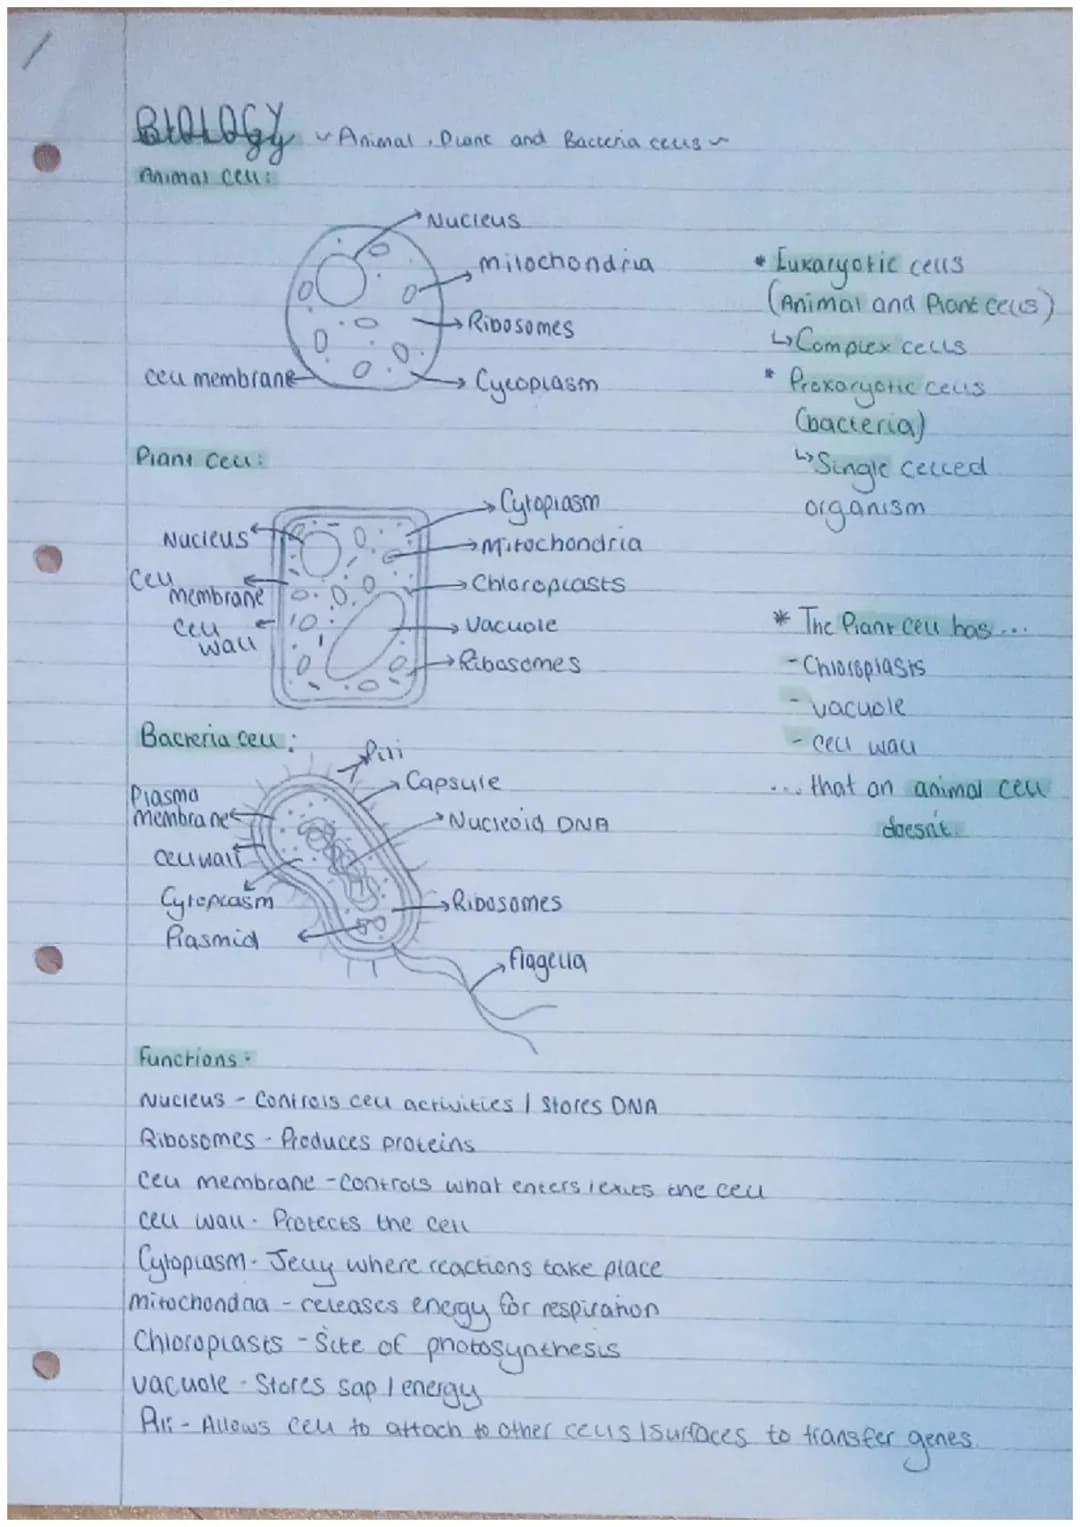 BIOLOGY ~ Animal, Plant and Bacteria cells ~
Animal cell:
Nucleus
Mitochondria
Ribosomes
cell membrane
Cytoplasm
* Eukaryotic cells
(Animal and Plant cells)
↳ Complex cells
* Prokaryotic cells
(bacteria)
↳ Single celled
organism
Plant cell:
Cytoplasm
Nucleus
Mitochondria
Cell
membrane
Chloroplasts
Cell
wall
Vacuole
Ribosomes
* The Plant cell has...
- Chloroplasts
- vacuole
- cell wall
... that an animal cell
doesn't.
Bacteria cell:
Pili
Capsule
Plasma
membrane
Nucleoid DNA
cell wall
Cytoplasm
Ribosomes
Plasmid
flagella
Functions:
Nucleus - Controls cell activities / Stores DNA
Ribosomes - Produces proteins
Cell membrane - controls what enters / exits the cell
cell wall - Protects the cell
Cytoplasm - Jelly where reactions take place
mitochondria - releases energy for respiration
Chloroplasts - Site of photosynthesis
vacuole - Stores sap / energy
Pili - Allows cell to attach to other cells / surfaces to transfer genes.